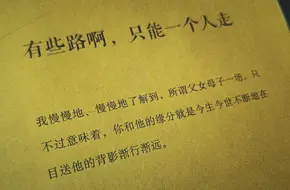 有些路啊，只能一个人走
我慢慢地、慢慢地了解到、所谓父女母子一场，只
不过意味着，你和他的缘分就是今生今世不断地在
目送他的背影渐行渐远。